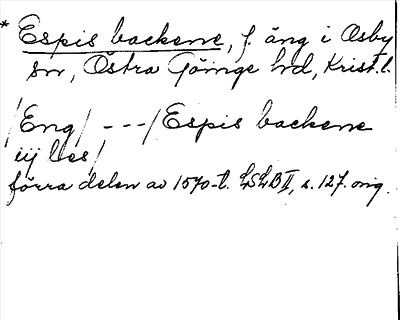 * Espis backene, f. äng i Osby
sn, Östra Göinge hd, Krist. l.
/Eng/ ---/Espis backene
iij les/
förra delen av 1570-t. LSLB II, s. 127. orig.